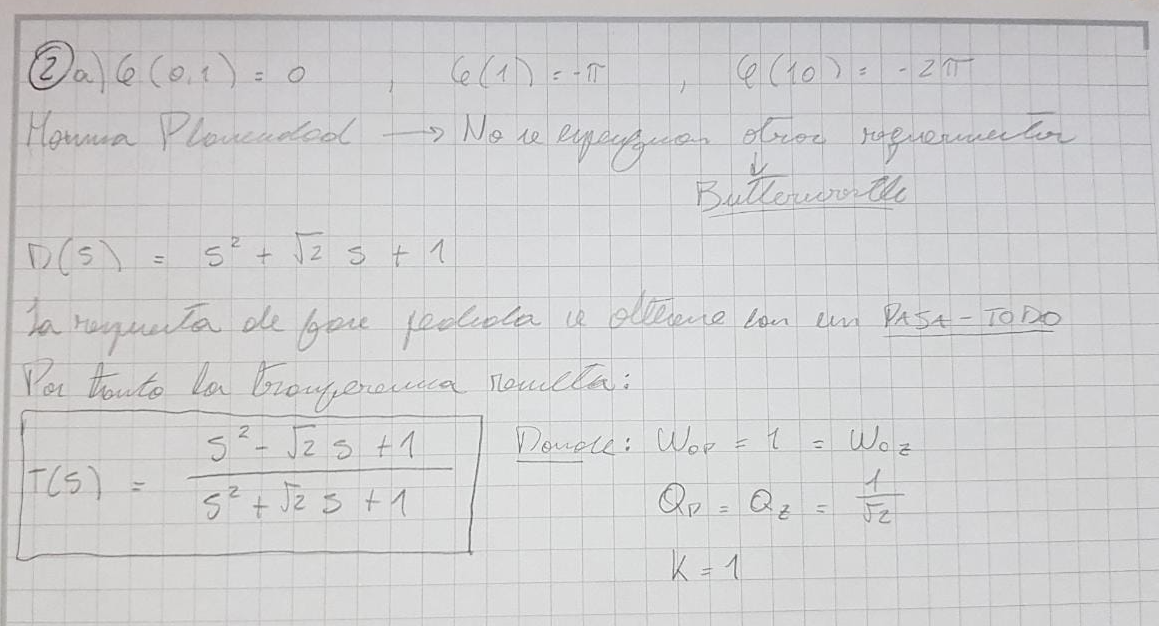 ② a) φ(0,1) = 0 , φ(1) = -π , φ(10) = -2π
Máxima Planicidad → No se especifican otros requerimientos
↓
Butterworth
D(s) = s² + √2 s + 1
La respuesta de fase pedida se obtiene con un PASA-TODO
Por tanto la transferencia resulta:
T(s) = (s² - √2 s + 1) / (s² + √2 s + 1) Donde: Wop = 1 = Woz
Qp = Qz = 1/√2
K = 1